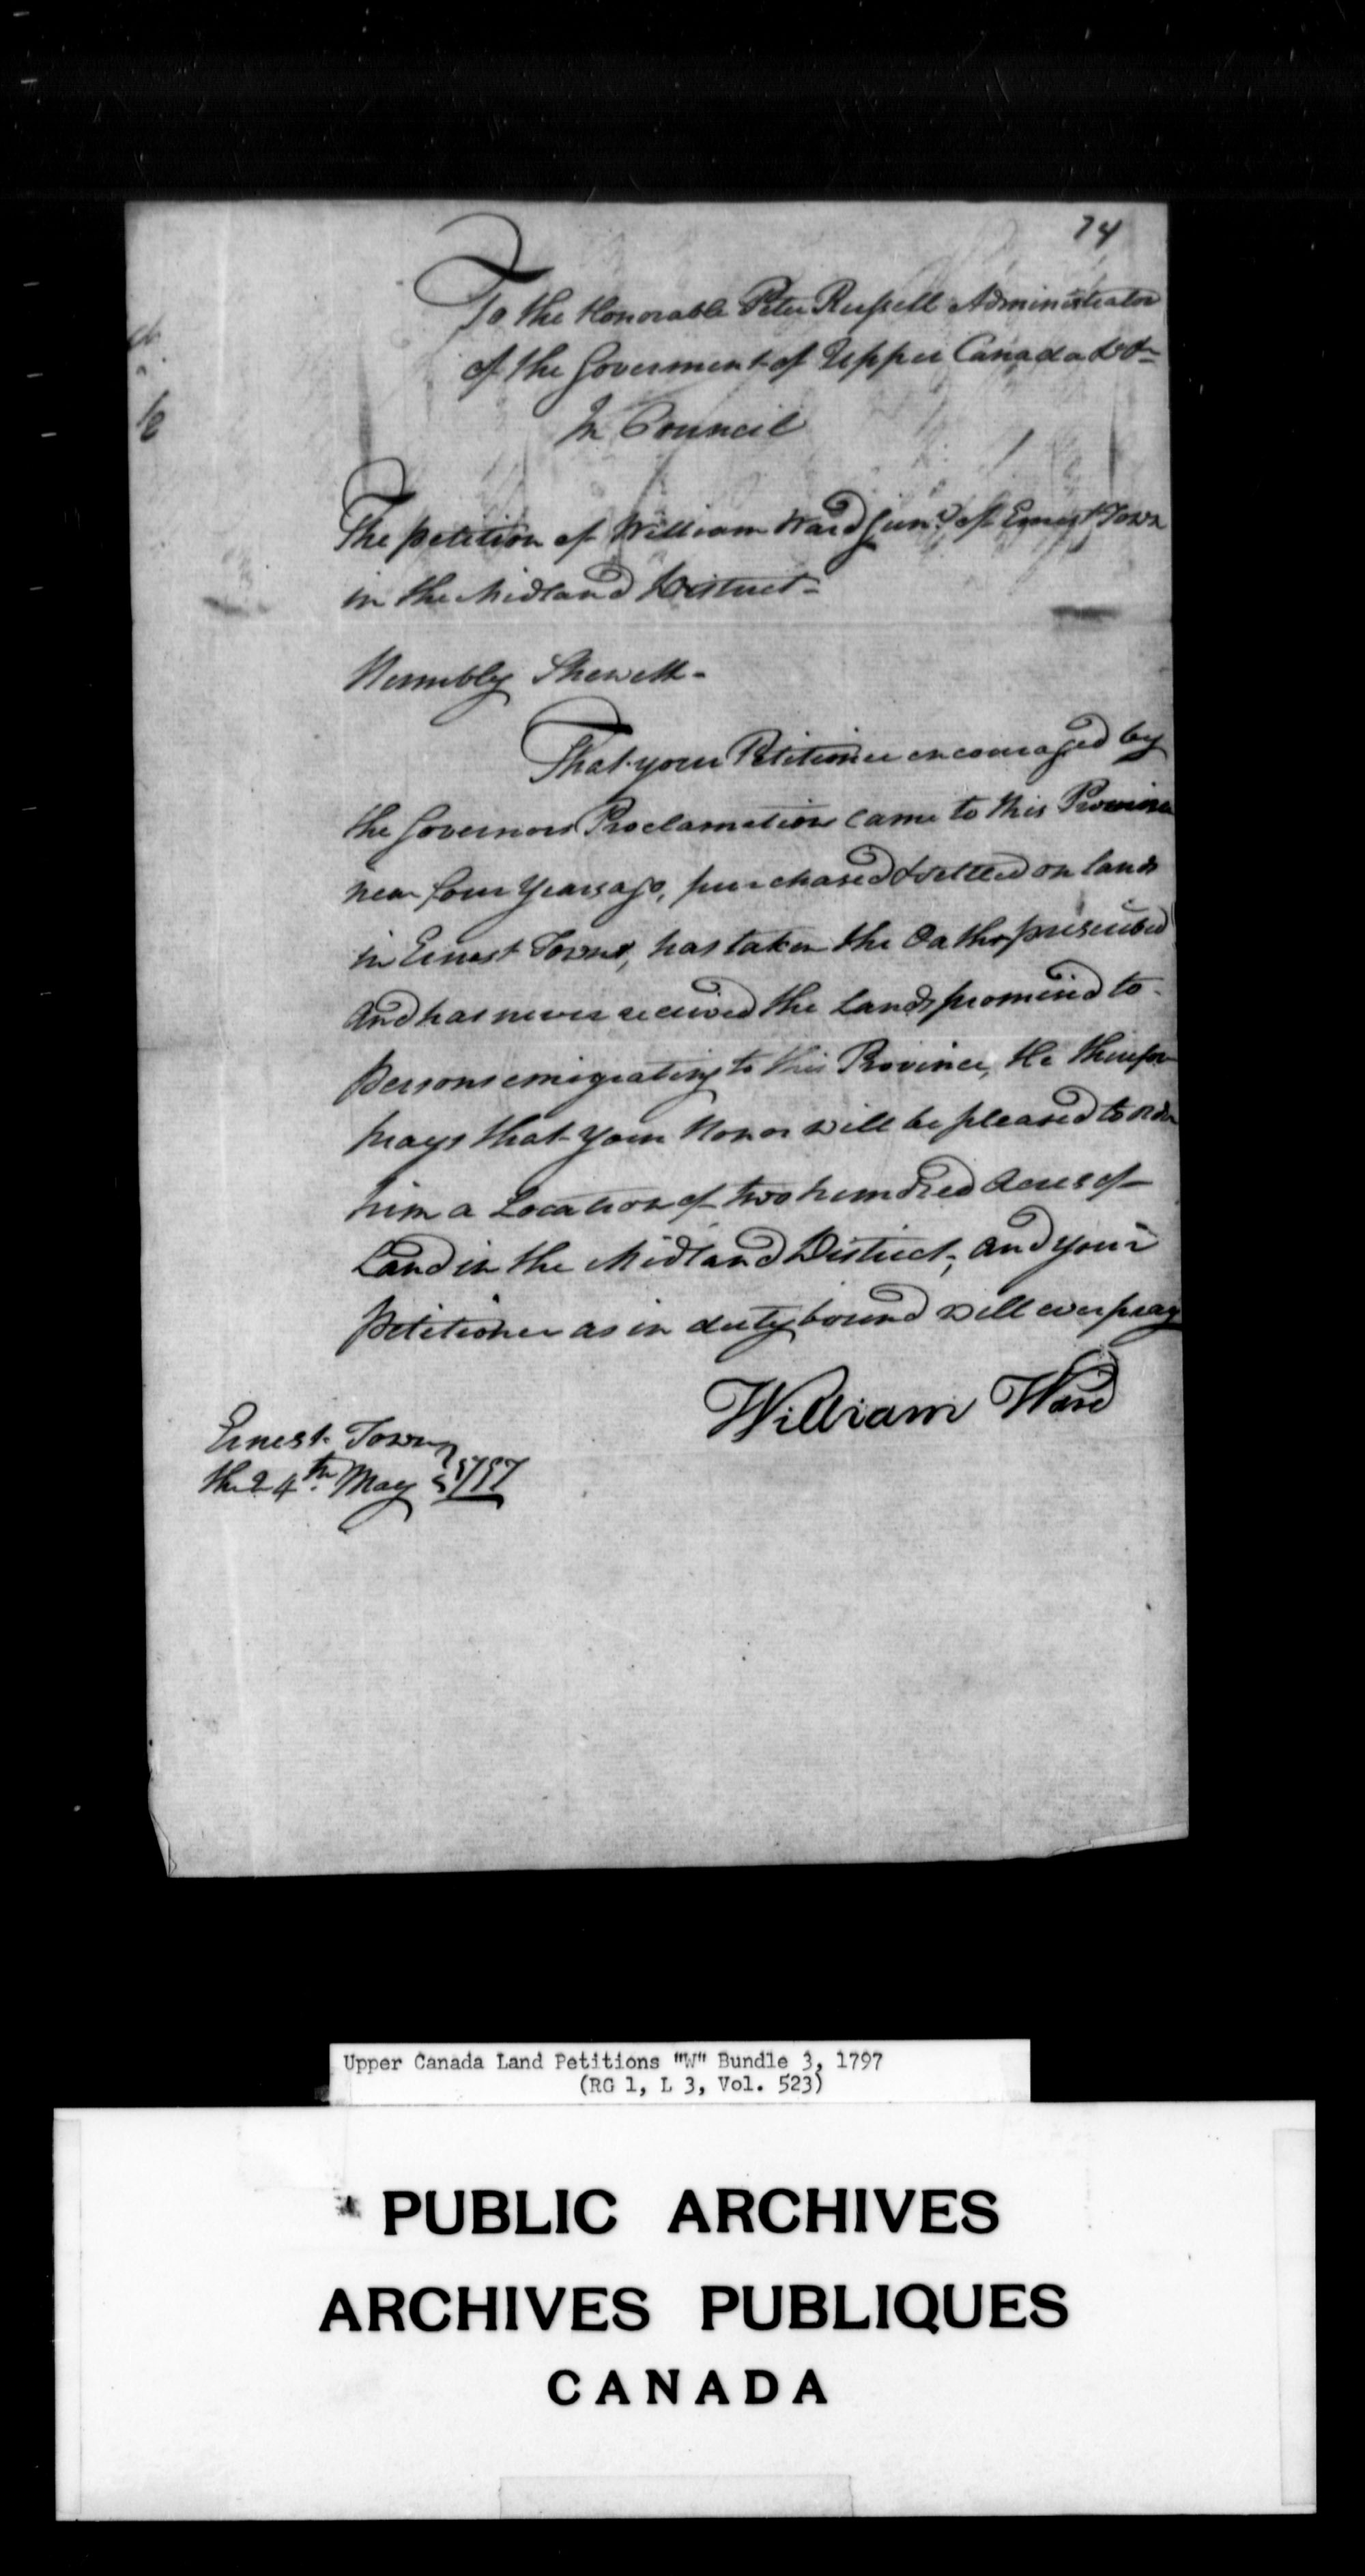 74
To the Honorable Peter Russell Administrator
of the Goverment of Upper Canada &c &c
In Council
The petition of William Ward Junr. of Ernest Town
in the Midland District-
Humbly Sheweth-
That your Petitioner encouraged by
the Governors Proclamation came to this Province
near four Years ago, purchased & settled on lands
in Ernest Town, has taken the Oaths prescribed
and has never received the Lands promised to
persons emigrating to this Province, He therefore
prays that your Honor will be pleased to order
him a Location of two hundred Acres of
Land in the Midland District; and your
petitioner as in duty bound will ever pray
William Ward
Ernest Town
the 24th. May 1797
Upper Canada Land Petitions "W" Bundle 3, 1797
(RG 1, L 3, Vol. 523)
PUBLIC ARCHIVES
ARCHIVES PUBLIQUES
CANADA